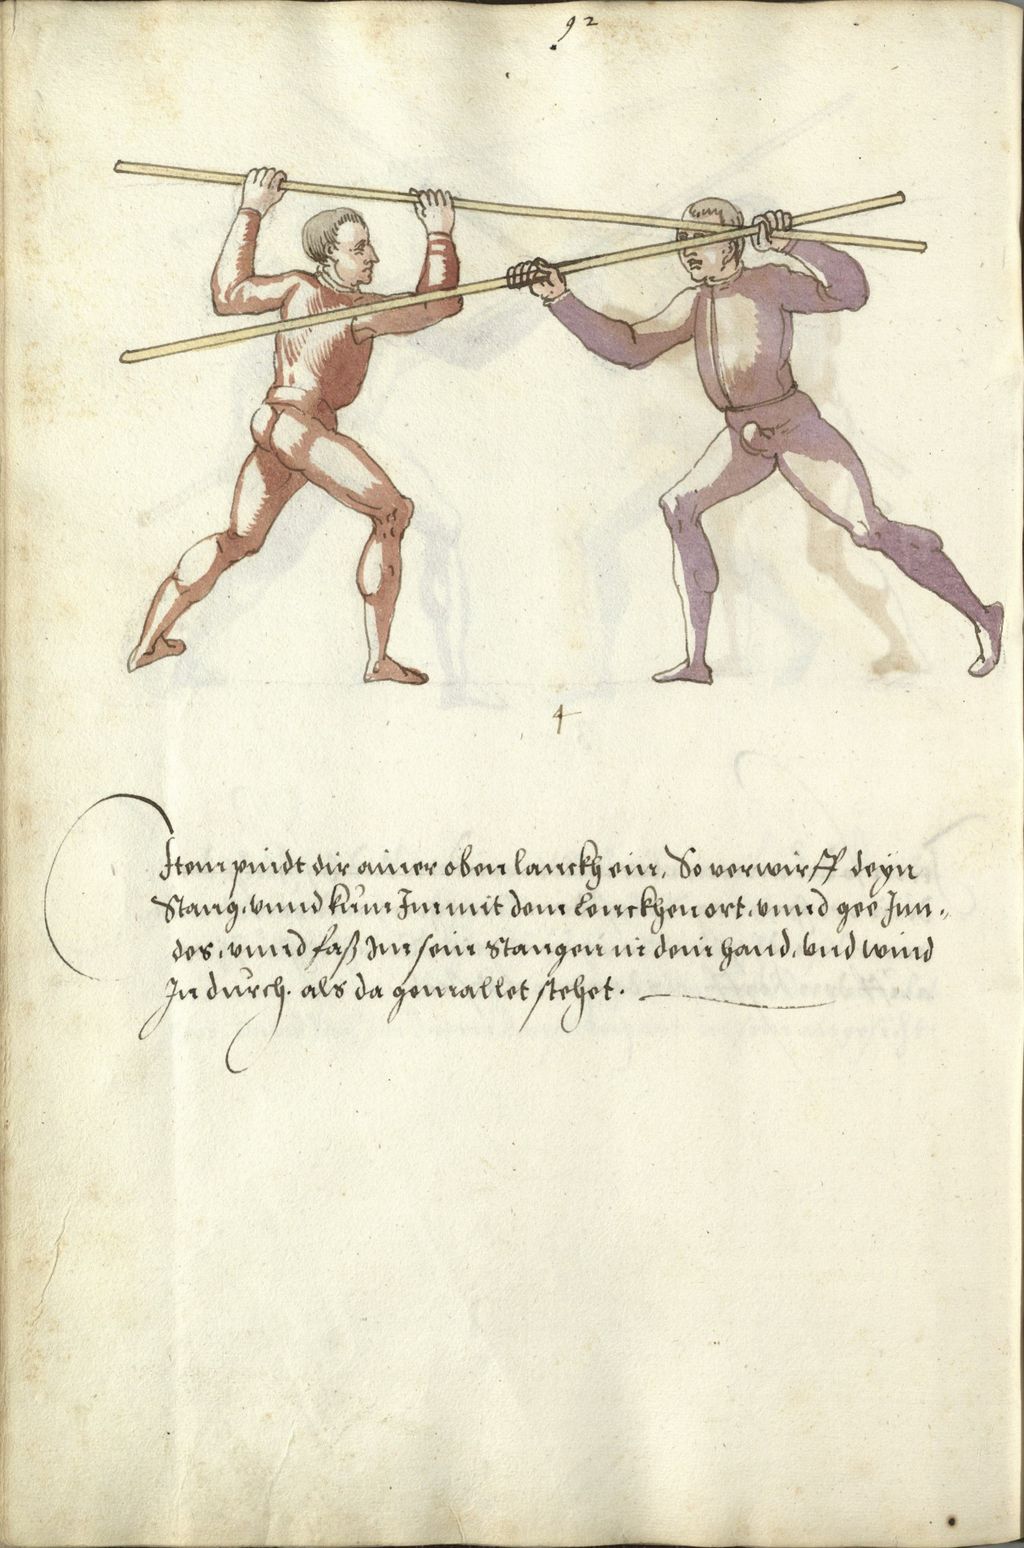 92
4
Item pindt dir ainer oben lanckh ein, So verwirff deyn
Stang, vnnd kum Im mit dem lenckhen ort, vnnd gee Inn-
des, vnnd faß Im sein Stangen in dein hand, vnd wind
In durch. als da gemallet stehet.